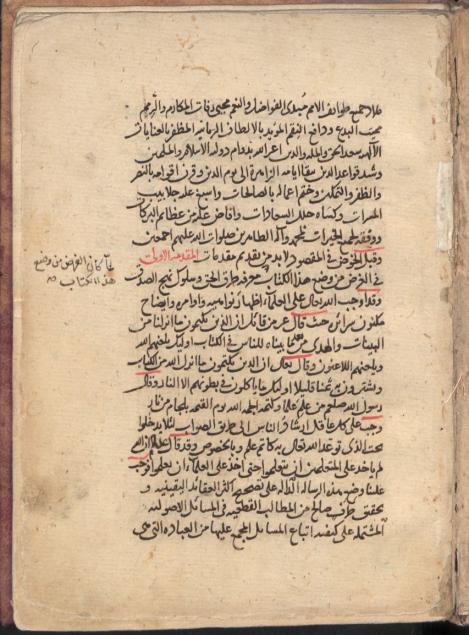 علا جميع طوايف الامم مبدى الفواضل والنعم محيى رفات المكارم والرمم
البدع ودافع النقم المؤيد بالالطاف الربانية المظفر بالعنايات
الالهية سعد الحق والملة والدين اعز الله بدوام دولته الاسلام والمسلمين
وشيد قواعد الدين ببقاء ايامه الزاهرة الى يوم الدين وقرن اقواله بالنجح
والظفر والتمكين وختم اعماله بالصالحات واسبغ عليه جلابيب
المبرات وكساه حلل السعادات وافاض عليه من عظائم البركات
ووفقه لجميع الخيرات بمحمد وآله الطاهرين صلوات الله عليهم اجمعين
وقبل الخوض في المقصود لابد من تقديم مقدمات المقدمة الاولى
في الغرض من وضع هذا الكتاب معرفة طرق الحق وسلوك نهج الصدق
وقد اوجب الله تعالى على العلماء اظهار نواميسه واوامره وايضاح
مكنون سرائره حيث قال عز من قائل ان الذين يكتمون ما انزلنا من
البينات والهدى من بعد ما بيناه للناس في الكتاب اولئك يلعنهم الله
ويلعنهم اللاعنون وقال تعالى ان الذين يكتمون ما انزل الله من الكتاب
ويشترون به ثمنا قليلا اولئك ما ياكلون في بطونهم الا النار وقال
رسول الله صلعم من علم علما وكتمه الجمه الله يوم القيمة بلجام من نار
وجب على كل عاقل ارشاد الناس الى طريق الصواب لئلا يدخلوا
تحت الذى توعد الله تعالى به كاتم علمه وبالخصوص وقد قال
لم ياخذ على المتعلمين ان يتعلموا حتى اخذ على العلماء ان يعلموا فوجب
علينا وضع هذه الرسالة الدالة على تصحيح اكثر العقائد اليقينية و
تحقيق طرف صالح من المطالب القطعية في المسائل الاصولية
المشتملة على كيفية اتباع المسائل المجمع عليها من العبادة التى هى
الغرض من وضع
هذا الكتاب